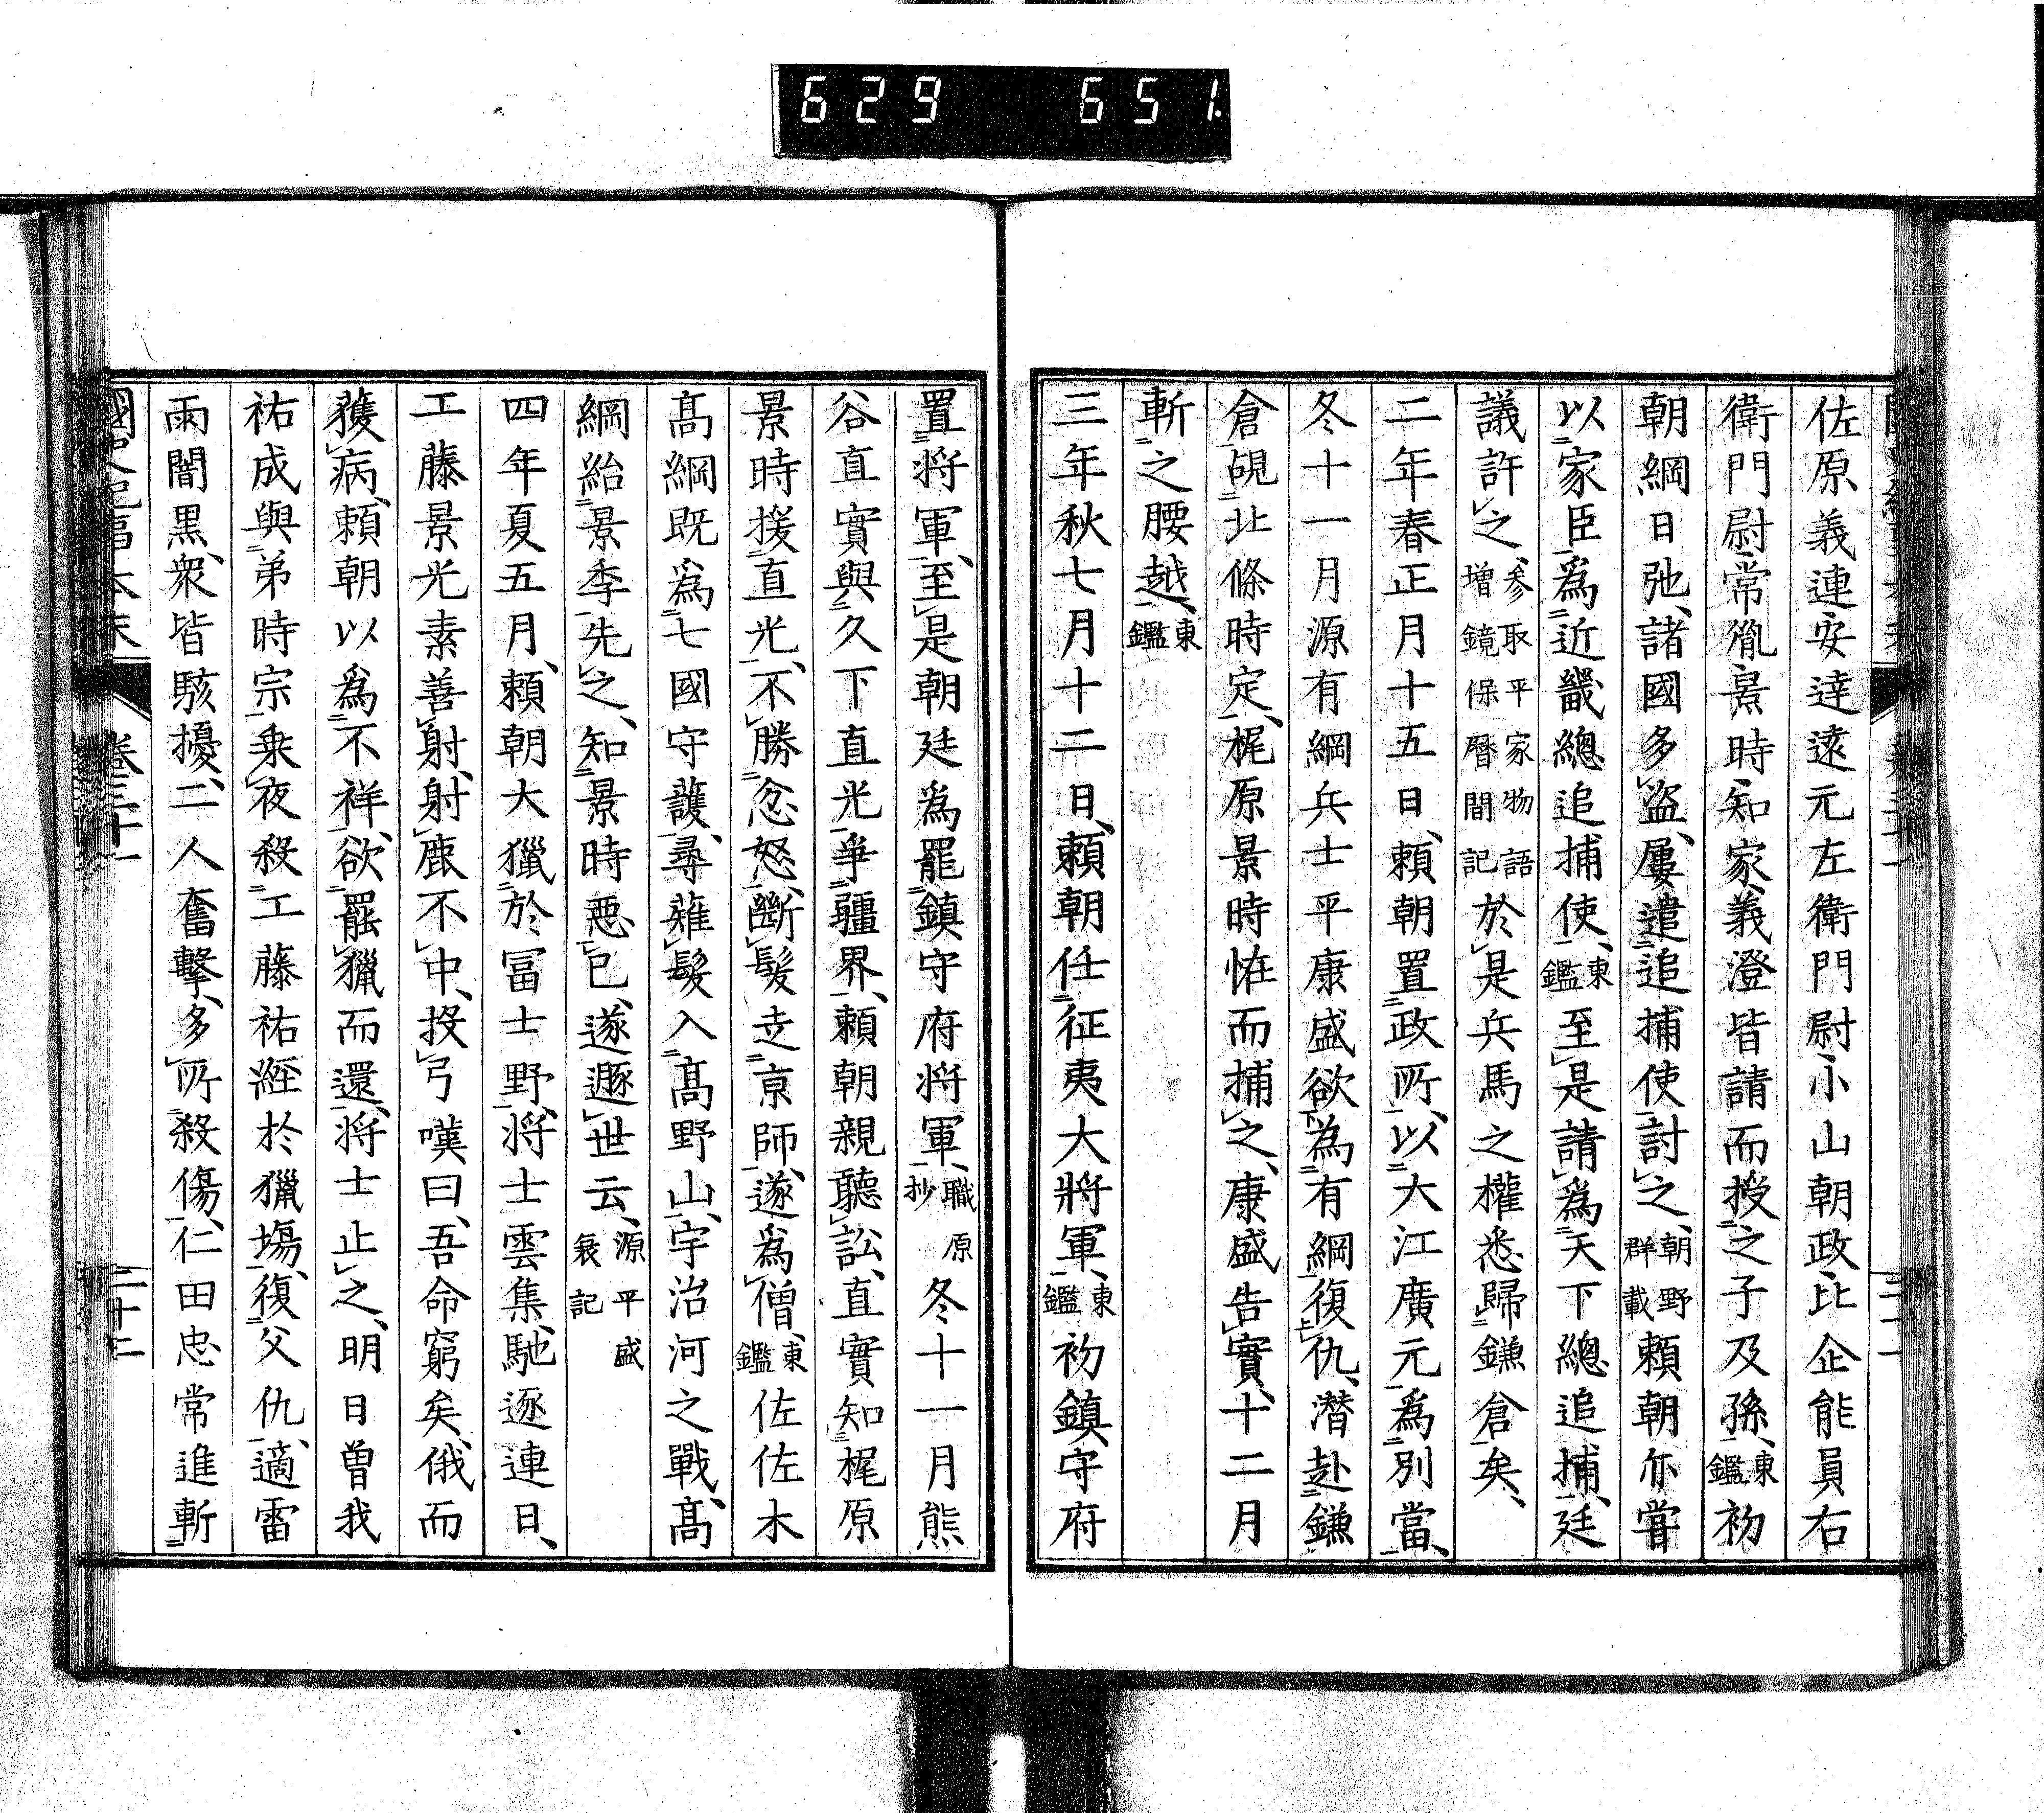 629 651.
佐原義連安達遠元左衛門尉小山朝政比企能員右
衛門尉常胤景時知家義澄皆請而授之子及孫、東鑑初
朝綱日弛、諸國多盗、屢遣追捕使討之、朝野群載頼朝亦嘗
以家臣爲近畿總追捕使、東鑑至是請爲天下總追捕、廷
議許之、參取平家物語増鏡保暦間記於是兵馬之權悉歸鎌倉矣、
二年春正月十五日、頼朝置政所、以大江廣元爲別當、
冬十一月源有綱兵士平康盛欲為有綱復仇、潜赴鎌
倉覘北條時定、梶原景時恠而捕之、康盛告實、十二月
斬之腰越、東鑑
三年秋七月十二日、頼朝任征夷大將軍、東鑑初鎮守府
置將軍、至是朝廷爲罷鎮守府將軍、職原抄冬十一月熊
谷直實與久下直光爭疆界、頼朝親聽訟、直實知梶原
景時援直光、不勝忿怒、斷髪走京師、遂爲僧、東鑑佐佐木
髙綱既爲七國守護、尋薙髪入髙野山、宇治河之戰、髙
綱紿景季先之、知景時惡已、遂遯世云、源平盛衰記
四年夏五月、頼朝大獵於冨士野、將士雲集、馳逐連日、
工藤景光素善射、射鹿不中、投弓嘆曰、吾命窮矣、俄而
獲病、頼朝以爲不祥、欲罷獵而還、將士止之、明日曽我
祐成與弟時宗乗夜殺工藤祐經於獵塲、復父仇、適雷
雨闇黒、衆皆駭擾、二人奮擊、多所殺傷、仁田忠常進斬
國史紀事本末 卷三十一 二十二